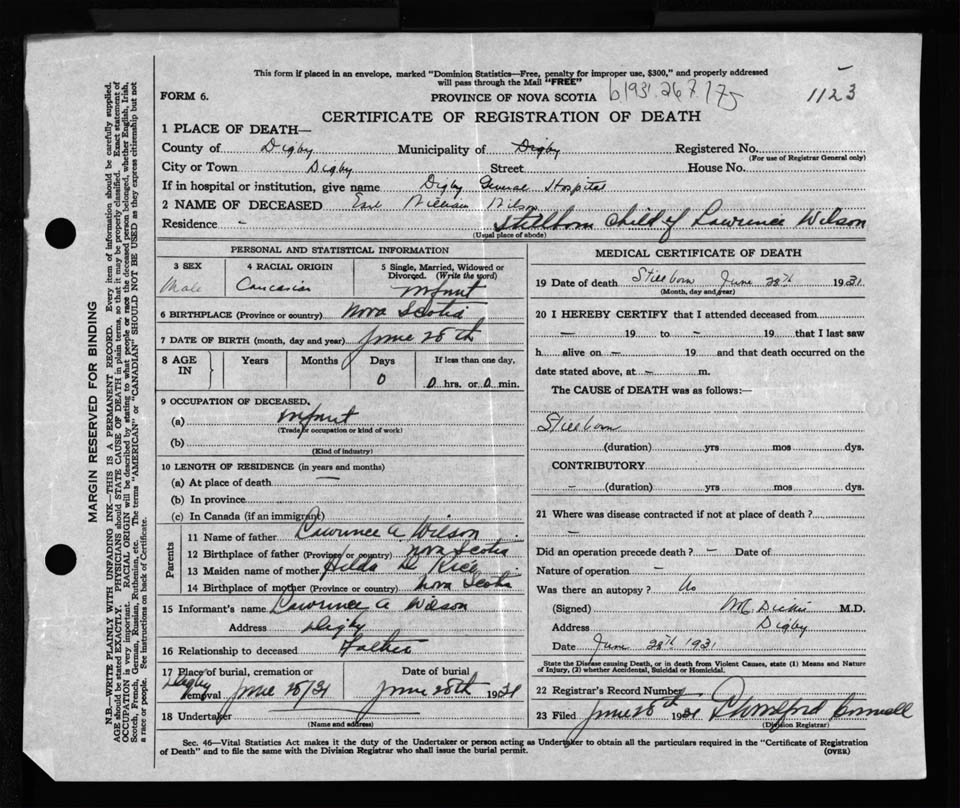 This form if placed in an envelope, marked "Dominion Statistics—Free, penalty for improper use, $300," and properly addressed
will pass through the Mail "FREE"
FORM 6. PROVINCE OF NOVA SCOTIA b1931.267175 1123
CERTIFICATE OF REGISTRATION OF DEATH
1 PLACE OF DEATH—
County of Digby Municipality of Digby Registered No.
(For use of Registrar General only)
City or Town Digby Street House No.
If in hospital or institution, give name Digby General Hospital
2 NAME OF DECEASED Earl William Wilson
Stillborn Child of Lawrence Wilson
Residence -
(Usual place of abode)
PERSONAL AND STATISTICAL INFORMATION
3 SEX 4 RACIAL ORIGIN 5 Single, Married, Widowed or
Divorced. (Write the word)
Male Caucasian Infant
6 BIRTHPLACE (Province or country) Nova Scotia
7 DATE OF BIRTH (month, day and year) June 28th
8 AGE IN Years Months Days If less than one day,
0 0 hrs. or 0 min.
9 OCCUPATION OF DECEASED,
(a) Infant
(Trade or occupation or kind of work)
(b)
(Kind of industry)
10 LENGTH OF RESIDENCE (in years and months)
(a) At place of death —
(b) In province
(c) In Canada (if an immigrant)
Parents
11 Name of father Lawrence A. Wilson
12 Birthplace of father (Province or country) Nova Scotia
13 Maiden name of mother Hilda D. Rice
14 Birthplace of mother (Province or country) Nova Scotia
15 Informant's name Lawrence A Wilson
Address Digby
16 Relationship to deceased Father
17 Place of burial, cremation or removal Date of burial
Digby June 28/31 June 28th 1931
18 Undertaker
(Name and address)
MEDICAL CERTIFICATE OF DEATH
19 Date of death Stillborn June 28th 1931
(Month, day and year)
20 I HEREBY CERTIFY that I attended deceased from
— 19 to — 19 that I last saw
h alive on — 19 and that death occurred on the
date stated above, at — m.
The CAUSE of DEATH was as follows:—
Stillborn
(duration) yrs mos. dys.
CONTRIBUTORY
— (duration) yrs mos dys.
21 Where was disease contracted if not at place of death?
—
Did an operation precede death? — Date of
Nature of operation —
Was there an autopsy? No
(Signed) Dickie M.D.
Address Digby
Date June 28th 1931
State the Disease causing Death, or in death from Violent Causes, state (1) Means and Nature
of Injury, (2) whether Accidental, Suicidal or Homicidal.
22 Registrar's Record Number
23 Filed June 28th 1931
(Division Registrar)
Sec. 46—Vital Statistics Act makes it the duty of the Undertaker or person acting as Undertaker to obtain all the particulars required in the "Certificate of Registration
of Death" and to file the same with the Division Registrar who shall issue the burial permit. (OVER)
MARGIN RESERVED FOR BINDING
N.B.—WRITE PLAINLY WITH UNFADING INK—THIS IS A PERMANENT RECORD. Every item of information should be carefully supplied.
AGE should be stated EXACTLY. PHYSICIANS should STATE CAUSE OF DEATH in plain terms, so that it may be properly classified. Exact statement of
OCCUPATION is very important. RACIAL ORIGIN will be described by stating to what people or race the deceased person belonged, whether English, Irish,
Scotch, French, German, Russian, Ruthenian, etc. The terms "AMERICAN" or "CANADIAN" SHOULD NOT BE USED as they express citizenship but not
a race or people. See instructions on back of Certificate.